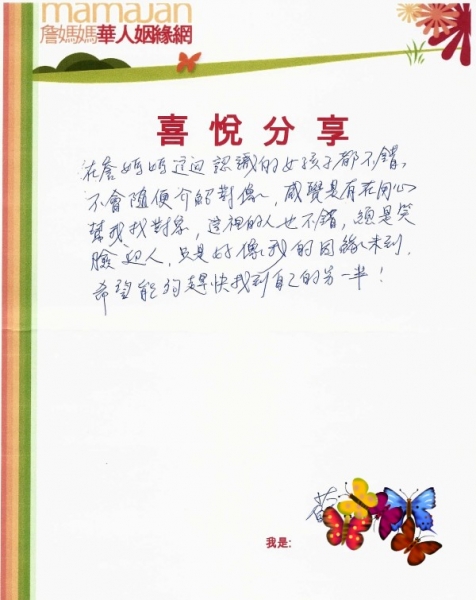 mamajan
詹媽媽華人姻緣網
喜悅分享
在詹媽媽這邊認識的女孩子都不錯,
不會隨便介紹對像, 感覺是有在用心
幫我找對象, 這裡的人也不錯, 總是笑
臉迎人, 只是好像我的因緣未到,
希望能夠趕快找到自己的另一半!
我是: